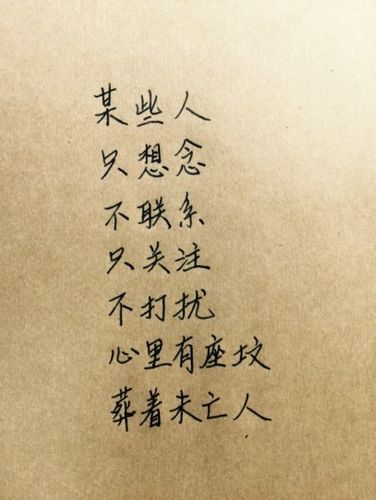 某些人
只想念
不联系
只关注
不打扰
心里有座坟
葬着未亡人